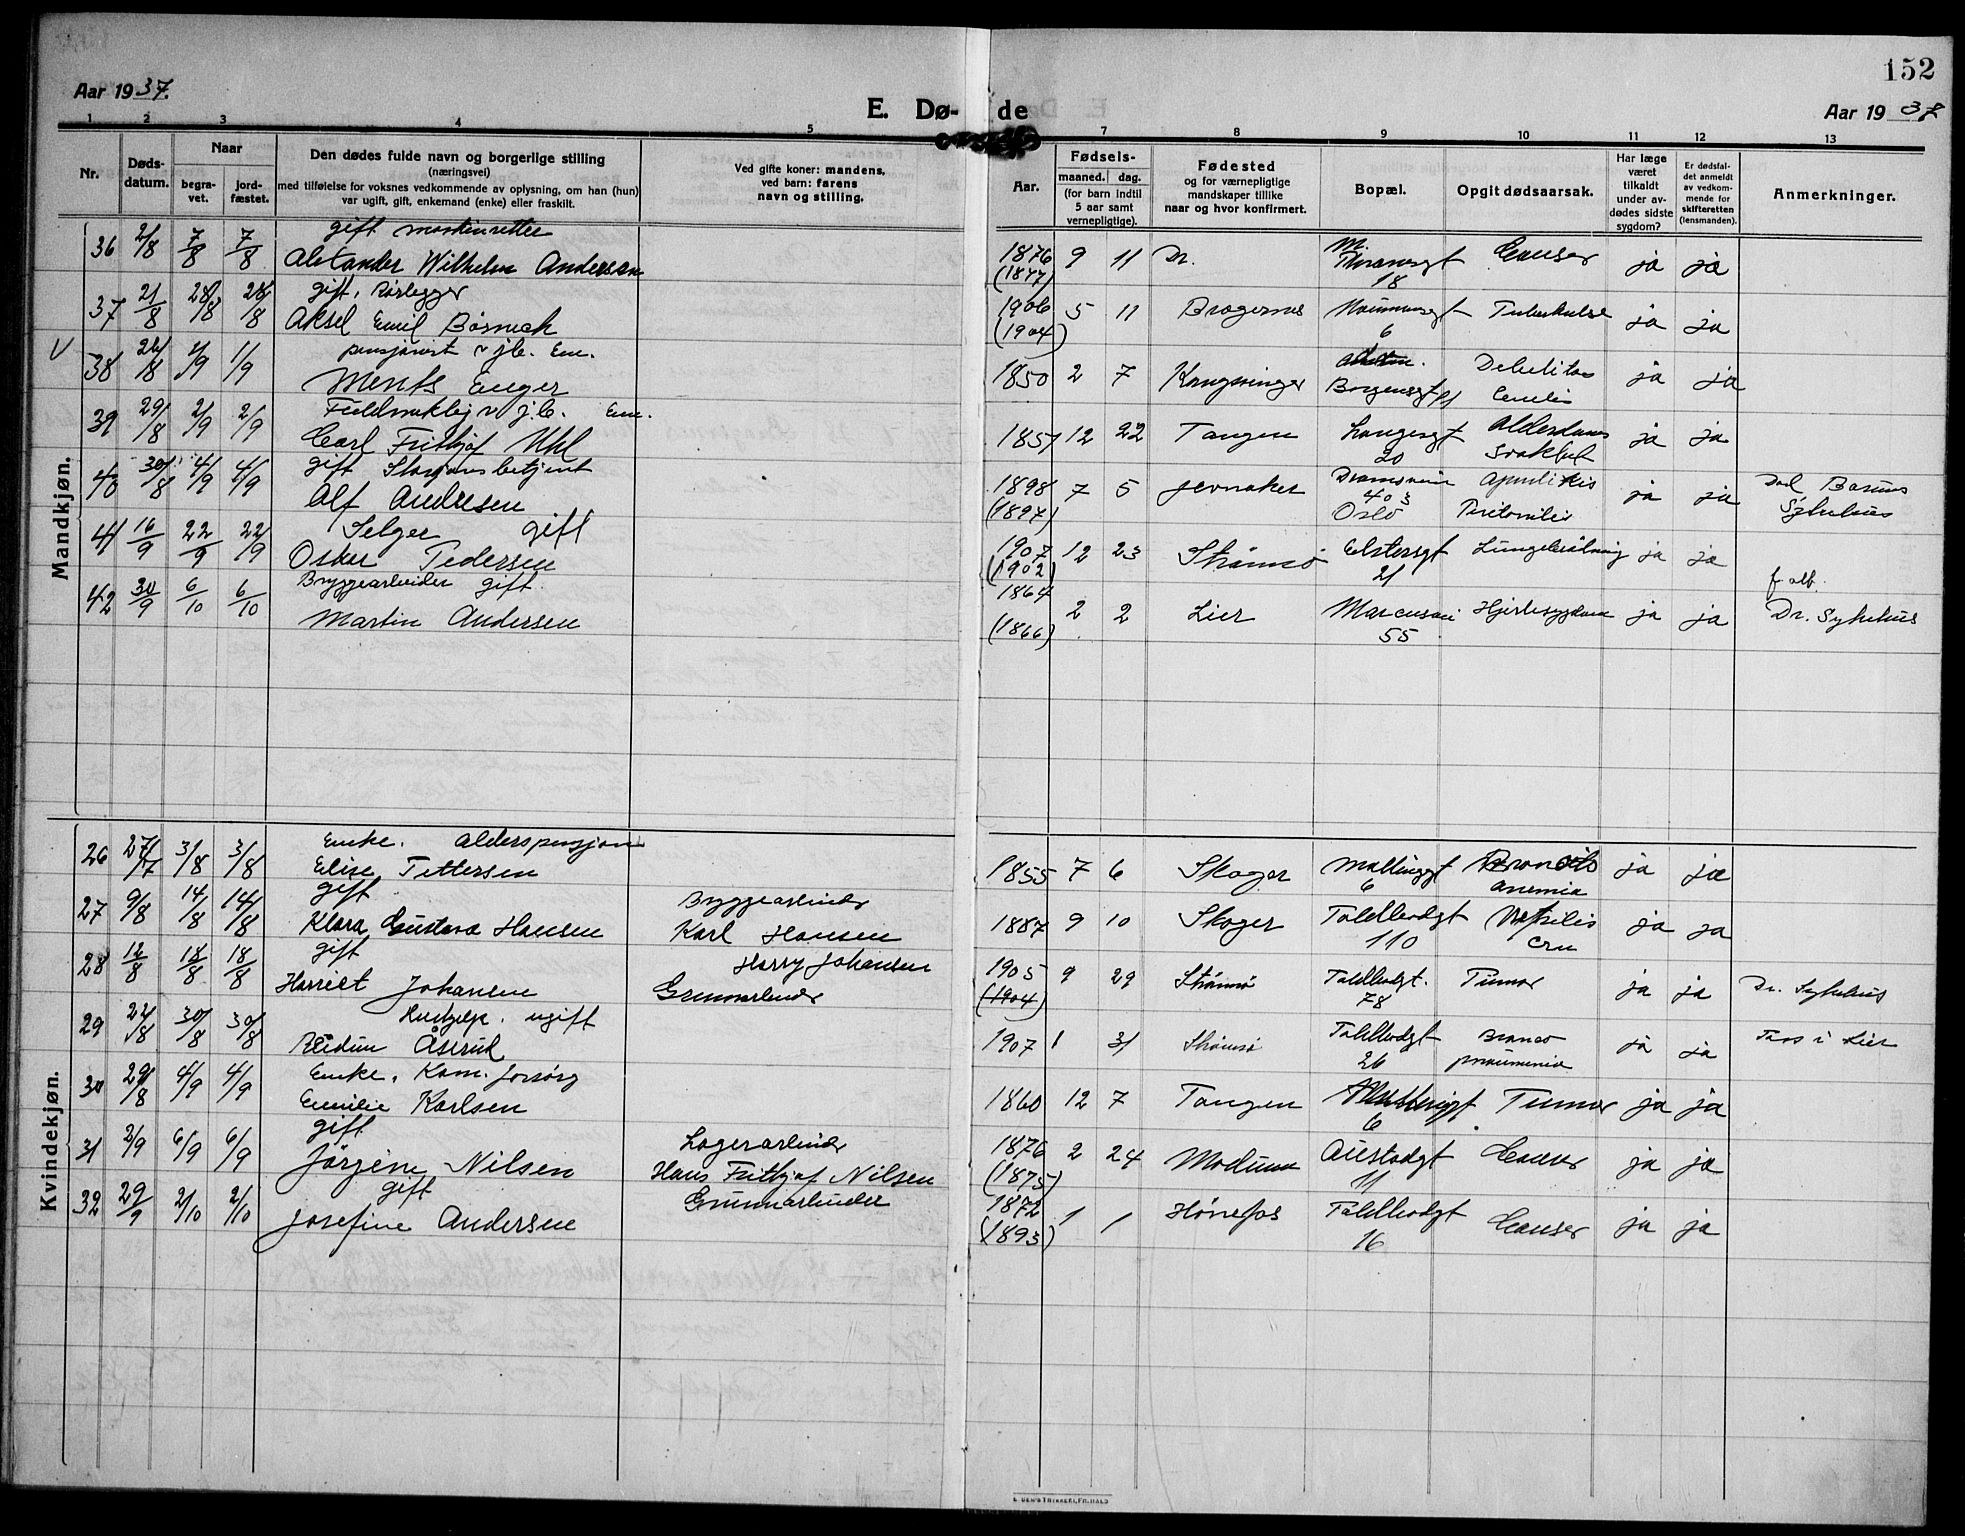 152
Aar 1937.
E. Dø- de
Aar 1937
1 2 3 4 5 7 8 9 10 11 12 13
Nr.
Døds-datum.
Naar
begra-vet.
jord-fæstet.
Den dødes fulde navn og borgerlige stilling
(næringsvei)
med tilføielse for voksnes vedkommende av oplysning, om han (hun)
var ugift, gift, enkemand (enke) eller fraskilt.
Ved gifte koner: mandens,
ved barn: farens
navn og stilling.
Aar.
Fødsels-
maaned. dag.
(for barn indtil
5 aar samt
vernepligtige).
Fødested
og for værnepligtige
mandskaper tillike
naar og hvor konfirmert.
Bopæl.
Opgit dødsaarsak.
Har læge
været
tilkaldt
under av-
dødes sidste
sygdom?
Er dødsfal-
det anmeldt
av vedkom-
mende for
skifteretten
(lensmanden).
Anmerkninger.
Mandkjøn.
gift
36 2/8 7/8 7/8 Alexander Wilhelm Andersen 1876 (1877) 9 11 Dr. 18 Canser ja ja
gift. Rørlegger
37 21/8 28/8 28/8 Aksel Emil 1906 (1904) 5 11 Bragernes 6 Tuberkulose ja ja
V
pensjonist v jb. Em.
38 1/9 1/9 Ments Enger 1850 2 7 Kongsvinger ja ja
Em.
39 29/8 2/9 2/9 Carl Frithjof Uhl 1857 12 22 Tangen Langesgt 20 ja ja
gift Stasjonsbetjent
40 30/8 4/9 4/9 Alf Andresen 1898 (1897) 7 5 Jevnaker 403 Oslo ja ja Død Bærums Sykehus
Selger gift
41 16/9 22/9 22/9 Oskar Pedersen 1907 (1902) 12 23 Strømsø 21 ja ja
Bryggearbeider gift.
42 30/9 6/10 6/10 Martin Andersen 1864 (1866) 2 2 Lier 55 Hjertesygdom ja ja Dr. Sykehus
Kvindekjøn.
Enke. Alderspensjon
26 27/7 3/8 3/8 Elise Pettersen 1855 7 6 Skoger 6 anemia ja ja
gift
27 9/8 14/8 14/8 Klara Gustava Hansen Bryggearbeider Karl Hansen 1887 9 10 Skoger Toldbodgt 110 ja ja
gift
28 18/8 18/8 Harriet Johansen Harry Johansen 1905 (1904) 9 29 Strømsø Toldbodgt. 78 Tumor ja ja Dr. Sykehus
Hushjelp. ugift
29 30/8 30/8 Reidun Åsrud 1907 1 31 Strømsø Toldbodgt 26 ja ja
Enke. Kom. forsørg
30 29/8 4/9 4/9 Emilie Karlsen 1860 12 7 Tangen 6 Tumor ja ja
gift
31 2/9 6/9 6/9 Jørgine Nilsen Lagerarbeider Hans Frithjof Nilsen 1876 (1875) 2 24 Modum 11 Canser ja ja
gift
32 29/9 2/10 2/10 Josefine Andersen 1872 (1893) 1 1 Hønefos Toldbodgt 16 Canser ja ja